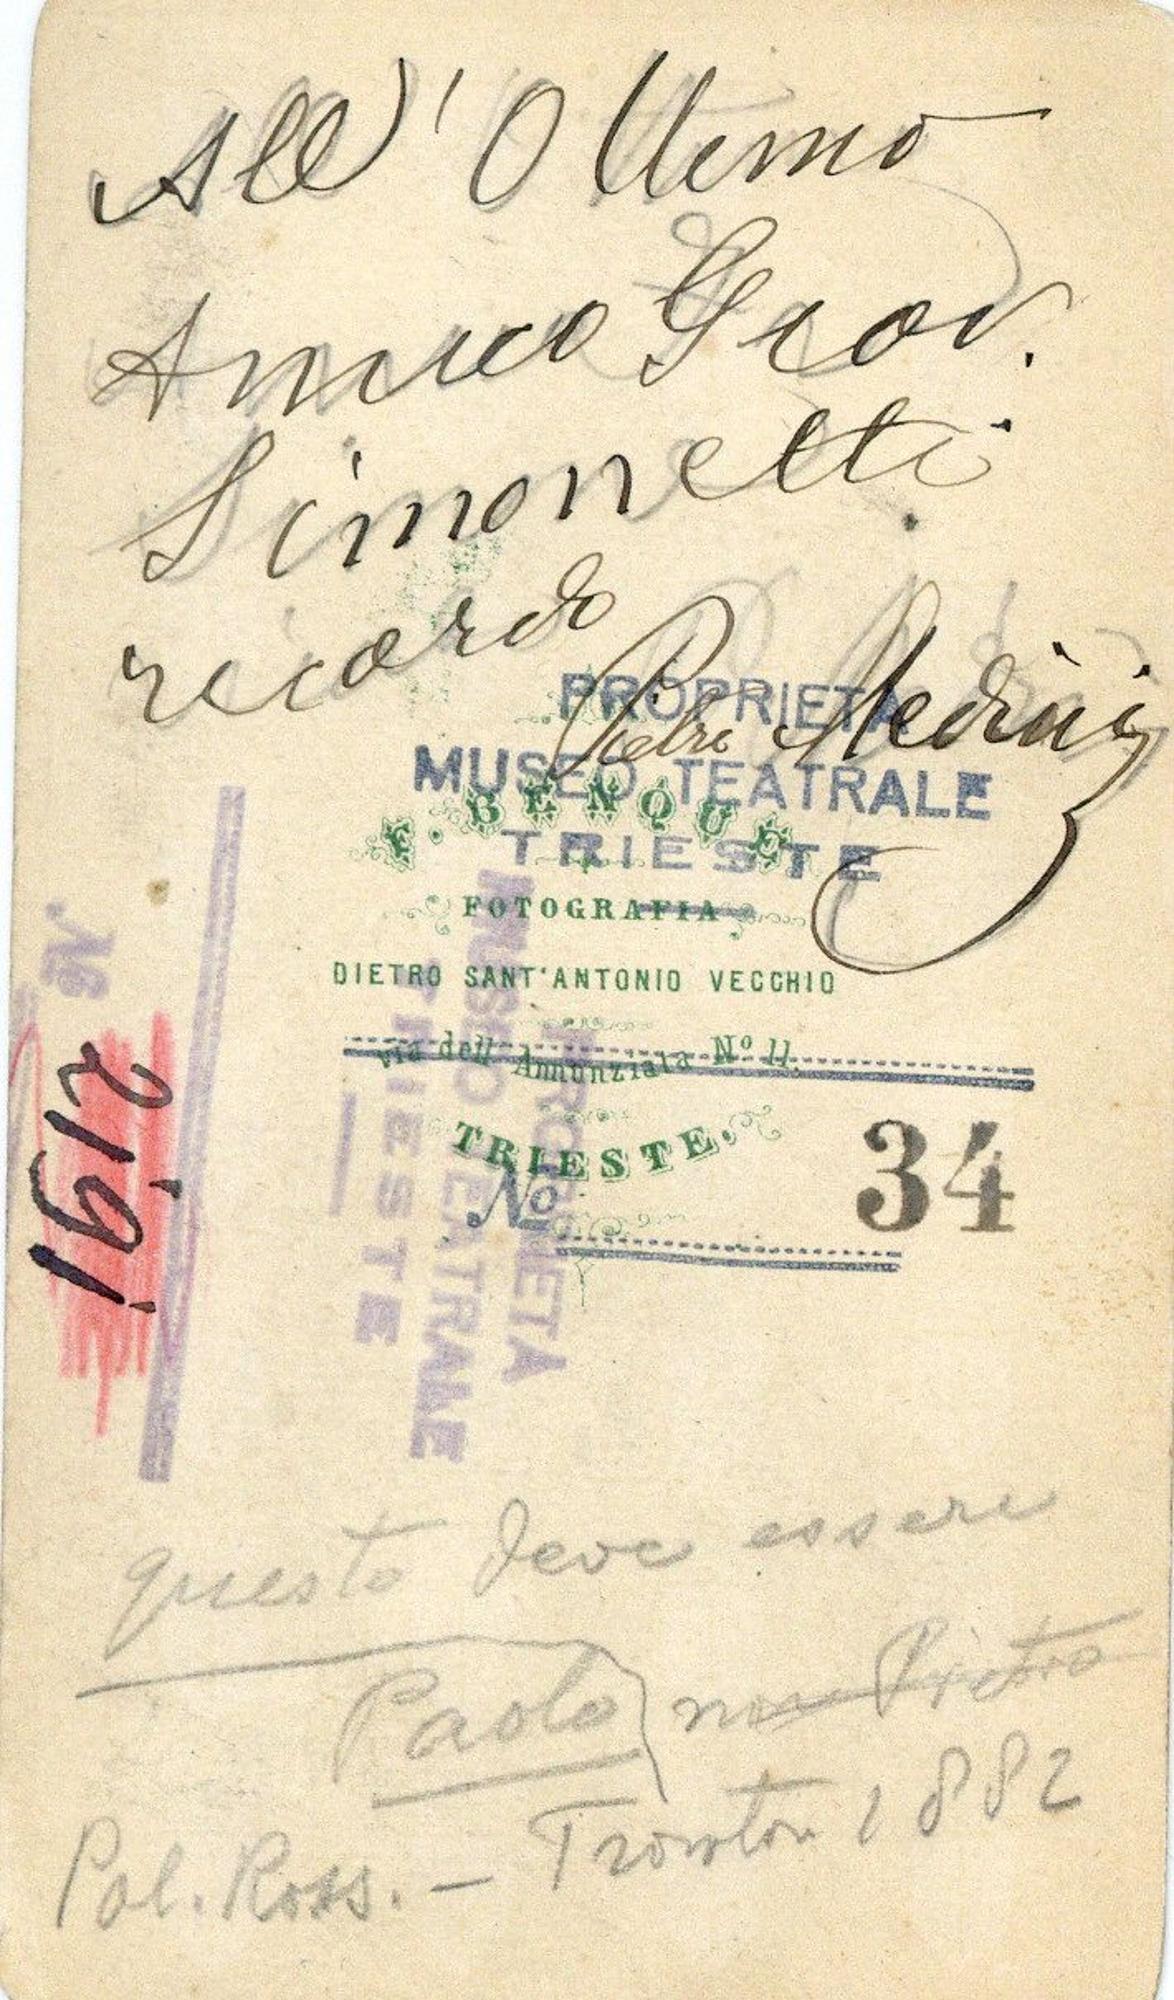 All' Ottimo
Amico Giov.
Simonetti
ricordo
Pietro Medini
PROPRIETÀ
MUSEO TEATRALE
TRIESTE
E. BENQUE
FOTOGRAFIA
DIETRO SANT'ANTONIO VECCHIO
Via dell' Annunziata No 11.
TRIESTE.
No 34
PROPRIETÀ
MUSEO TEATRALE
TRIESTE
No
2191
questo deve essere
Paolo non Pietro
Pol. Ross. – 1882